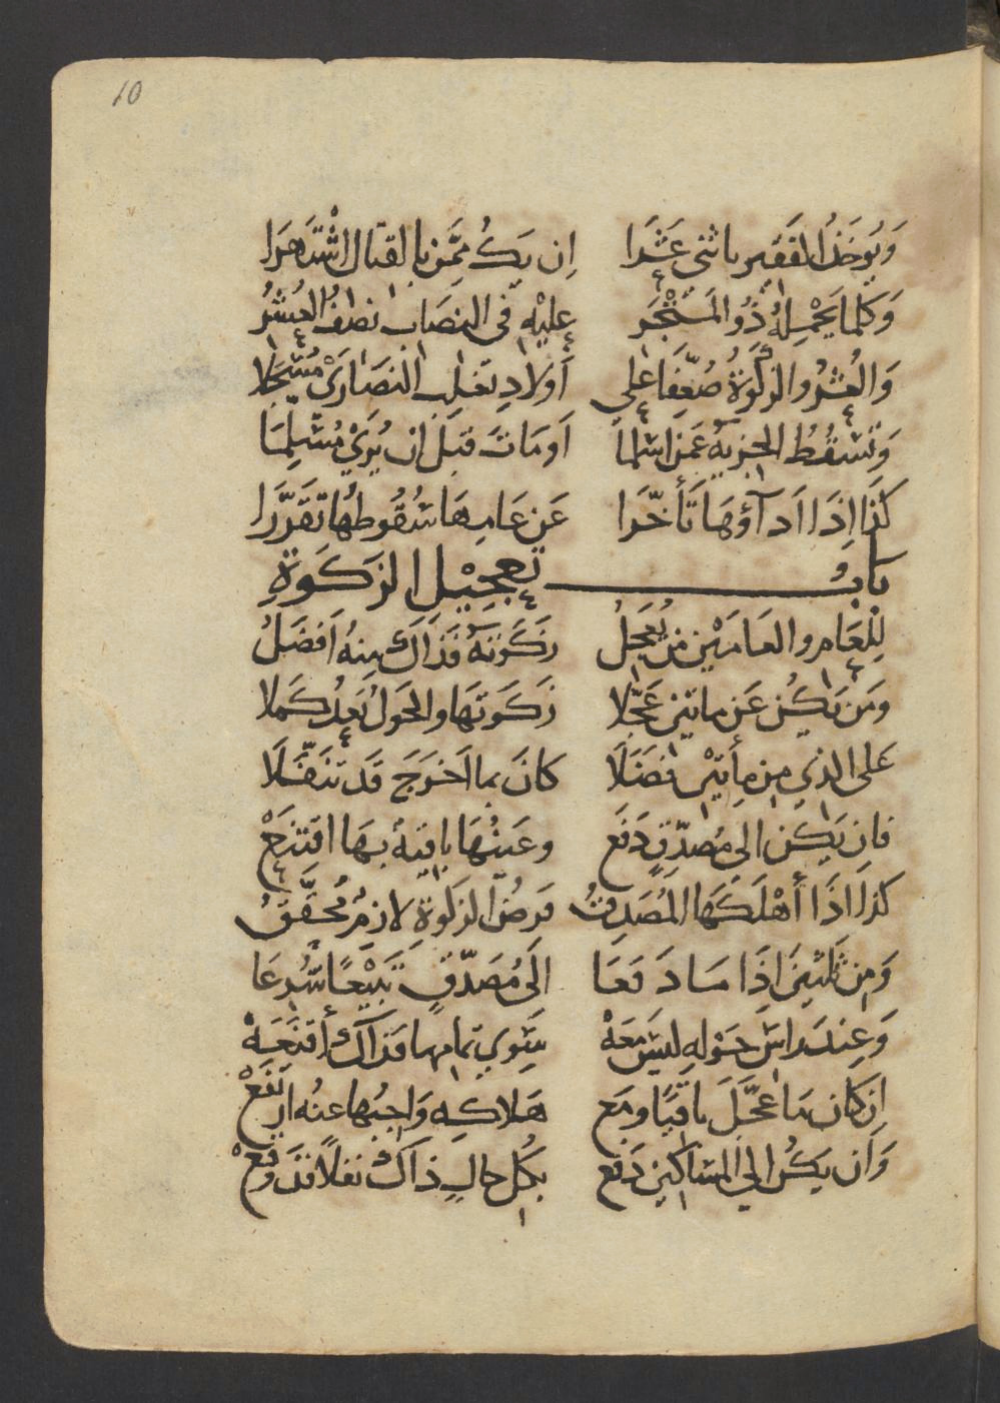 10
وَيُوخَذُ الفَقير باثنى عَشَرَا اِن يَكُ مِمَّن بالقتال اشْتَهَرَا
وَكلما يَحْمِلهُ ذُو المَتْجَرِ عليْهِ في النصَاب نصْفُ العُشْرُ
وَالعُشرُ والزكوةُ ضُعِّفَا على اَولادِ تغلِب النصَارَىْ مُسْجَلا
وَتَسْقُطُ الجزيةُ عَمن اسلما اَو مَاتَ قبلَ ان يُرَىْ مُسْلِمَا
كَذَا اِذَا اَدآؤهَا تَأخّرا عَن عَامِهَا سُقُوطهُا تقرَّرَا
بَابُ تعجِيْل الزكَوةِ
لِلعَامِ والعَامَيْنِ مَن يُعَجلُ زكَوتهُ فَذاَكَ مِنهُ اَفضَلُ
ومَن يَكُن عَن مايتيْن عَجّلا زَكَوتهَا والحَولُ بَعدُ كملا
على الذي مِن مِأيتيْنِ فضَلَا كانَ بما اَخرَجَ قَد تنَفَّلَا
فاِن يَكن الى مُصَدّقٍ دَفَع وعَينُهَا باقيةٌ بهَا انتزِعْ
كَذا اذَا أهْلكَهَا المُصَدِقُ فرضُ الزكوةِ لازمٌ مُحَقَّقُ
وَمِن ثلثينَ اِذَا مَا دَفعَا الَى مُصَدّقٍ تَبيْعًا شُرِعَا
وَعِندَ راسِ حَولهِ ليسَ مَعَهْ سِوى تمامِها فذاَكَ أقنَعَهْ
اِن كان مَا عَجَّلَ باقيًا ومَع هَلاكهِ وَاجِبُها عنهُ ارتفَعْ
وَان يَكُن الى المَساكين دَفَع بكُل حالٍ ذاَكَ نفلًا قَد وقعْ